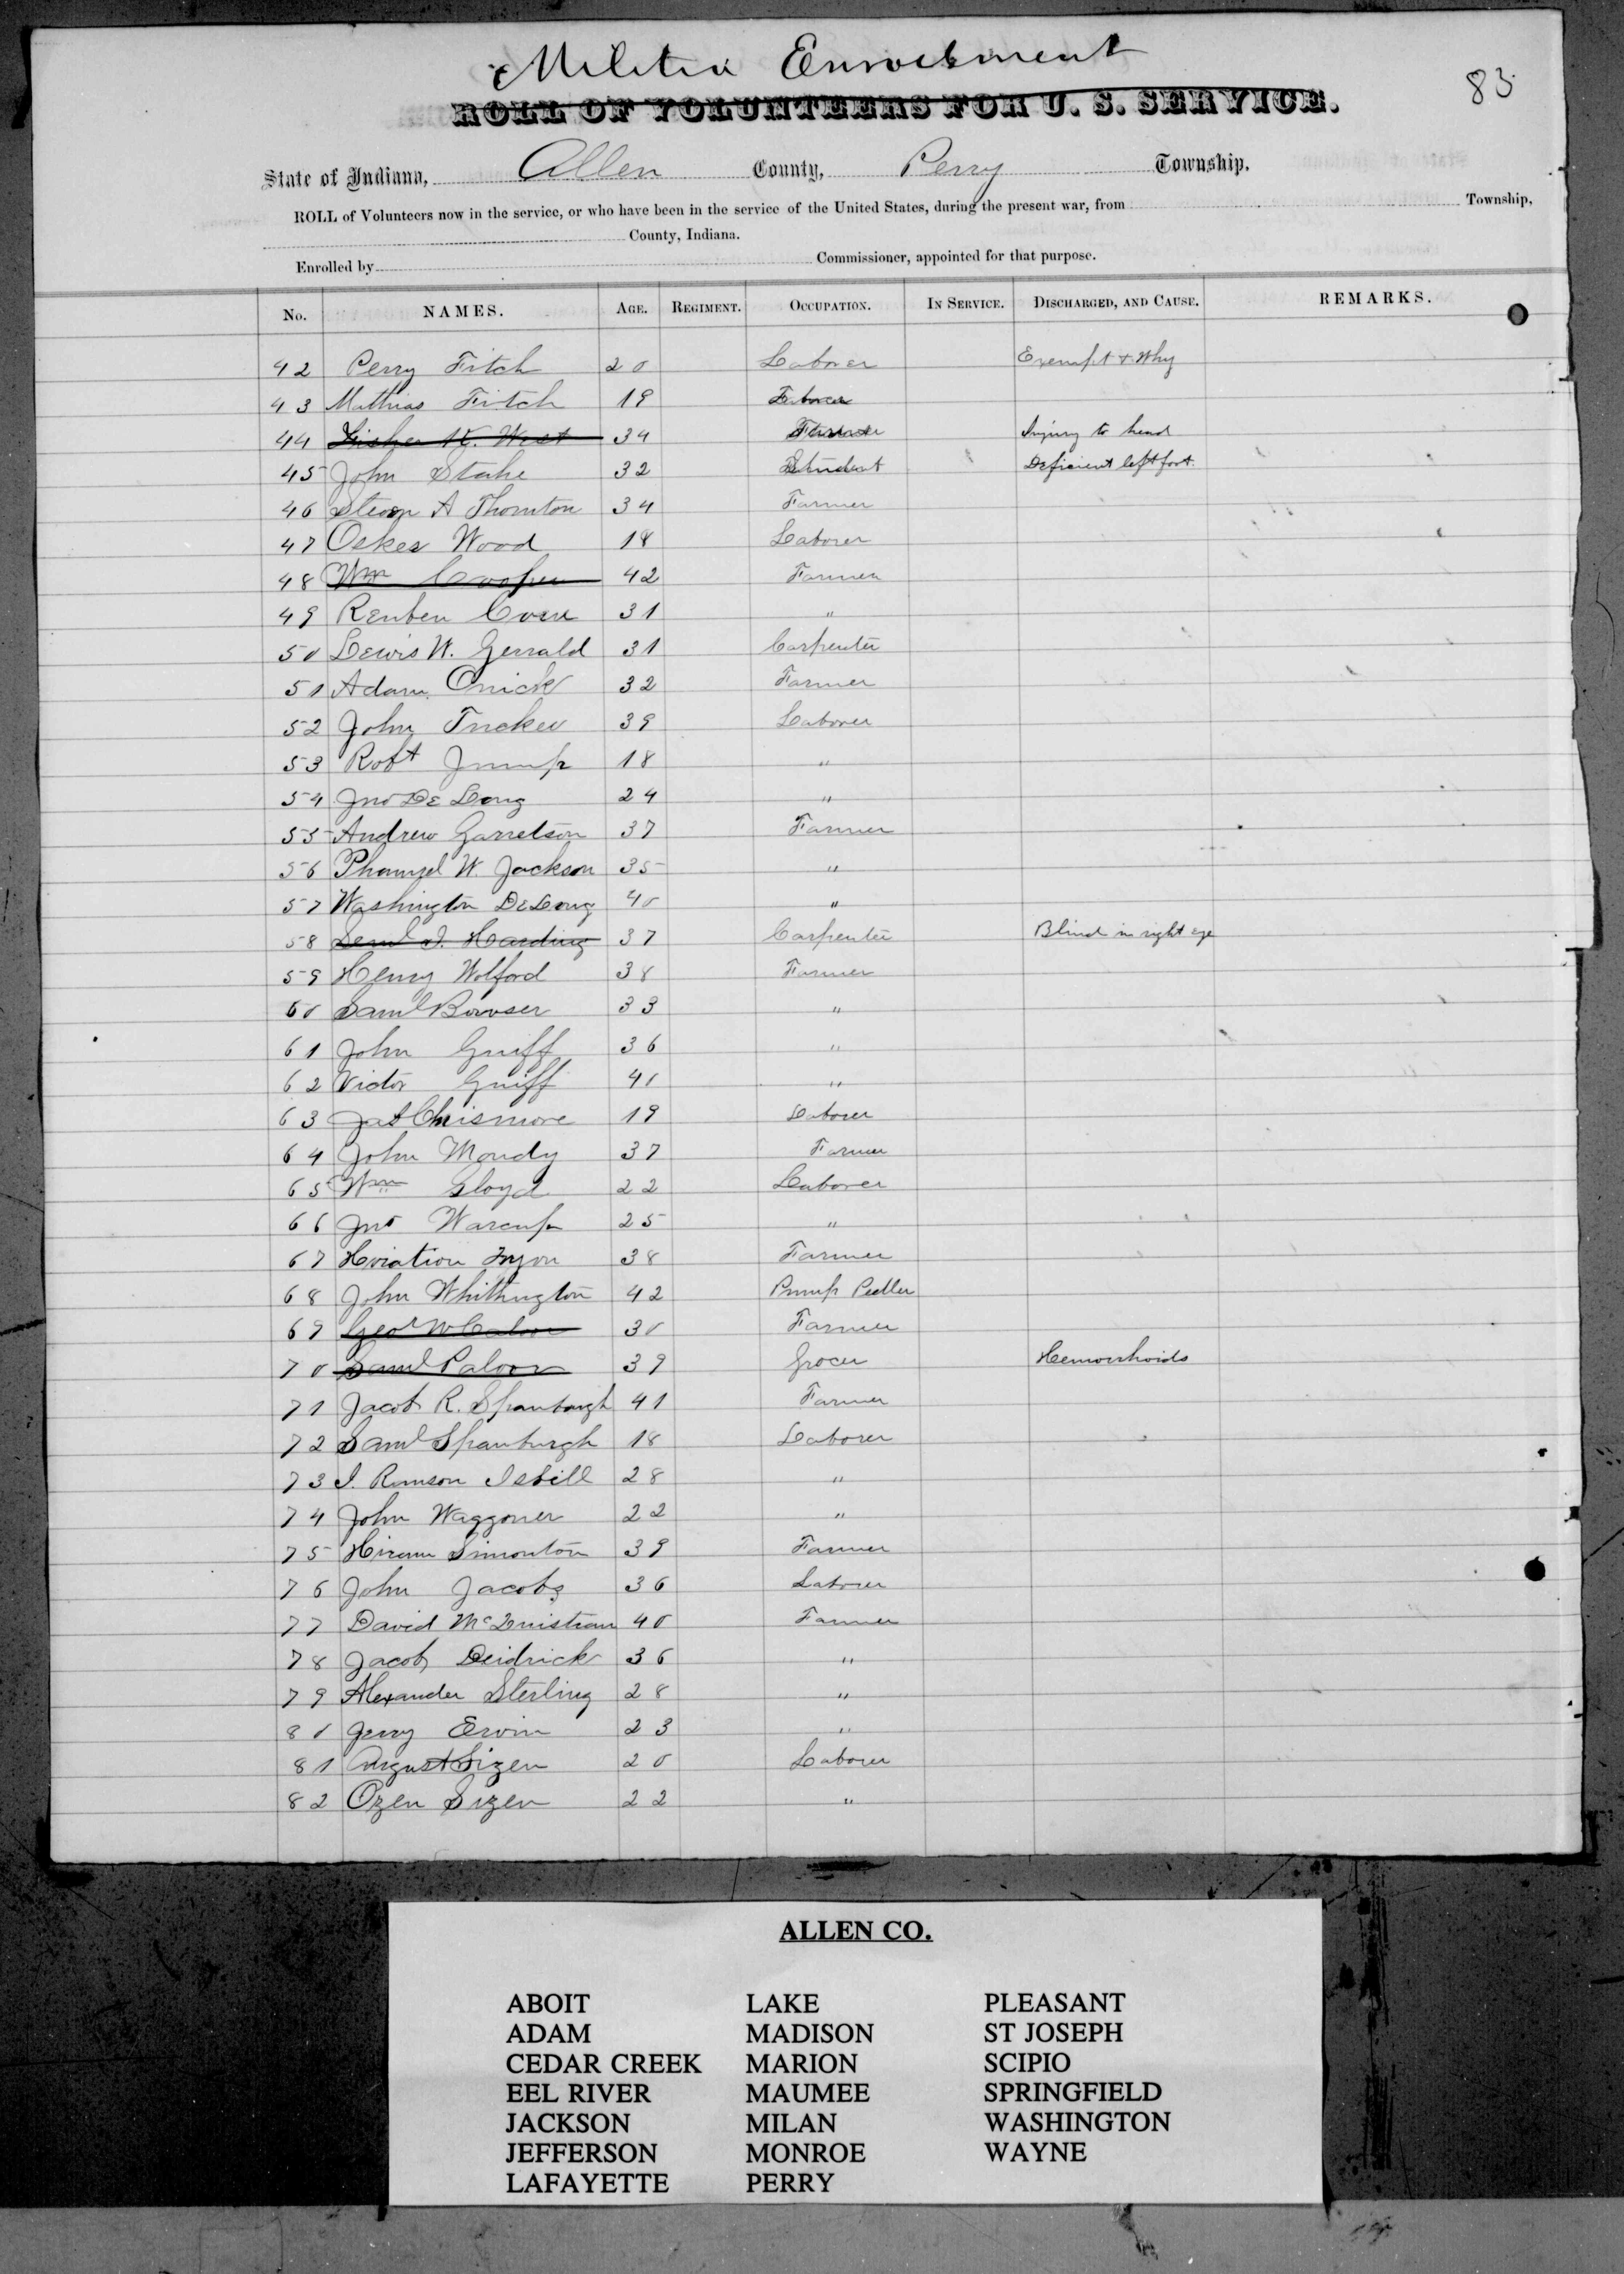 Militia Enrollment
ROLL OF VOLUNTEERS FOR U. S. SERVICE.
83
State of Indiana, Allen County, Perry Township.
ROLL of Volunteers now in the service, or who have been in the service of the United States, during the present war, from Township,
County, Indiana.
Enrolled by Commissioner, appointed for that purpose.
No. NAMES. AGE. REGIMENT. OCCUPATION. IN SERVICE. DISCHARGED, AND CAUSE. REMARKS.
42 Perry Fitch 20 Laborer Exempt & Why
43 Mathias Fitch 19 Laborer
44 West 34 Injury to head
45 John Stahe 32 Student Deficient left foot.
46 A Thornton 34 Farmer
47 Oskes Wood 18 Laborer
48 Wm Cooper 42 Farmer
49 Reuben 31 "
50 Lewis W. Gerrald 31 Carpenter
51 Adam 32 Farmer
52 John Tucker 39 Laborer
53 Robt Jump 18 "
54 Jno DeLong 24 "
55 Andrew Garretson 37 Farmer
56 W. Jackson 35 "
57 Washington DeLong 40 "
58 Harding 37 Carpenter Blind in right eye
59 Henry Wolford 38 Farmer
60 Saml Bowser 33 "
61 John Gruff 36 "
62 Victor Gniff 41 "
63 Jas Chismore 19 Laborer
64 John Mondy 37 Farmer
65 Wm Gloyd 22 Laborer
66 Jno Warcup 25 "
67 38 Farmer
68 John Whittington 42 Pump Pedler
69 Geo W 30 Farmer
70 Saml 39 Grocer Hemorrhoids
71 Jacob R. Spanburgh 41 Farmer
72 Saml Spanburgh 18 Laborer
73 Isbill 28 "
74 John Waggoner 22 "
75 Hiram Simonton 39 Farmer
76 John Jacobs 36 Laborer
77 David McQuistian 40 Farmer
78 Jacob Deidrick 36 "
79 Alexander Sterling 28 "
80 Jerry Ervin 23 "
81 August Sizen 20 Laborer
82 Ozen Sizen 22 "
ALLEN CO.
ABOIT LAKE PLEASANT
ADAM MADISON ST JOSEPH
CEDAR CREEK MARION SCIPIO
EEL RIVER MAUMEE SPRINGFIELD
JACKSON MILAN WASHINGTON
JEFFERSON MONROE WAYNE
LAFAYETTE PERRY